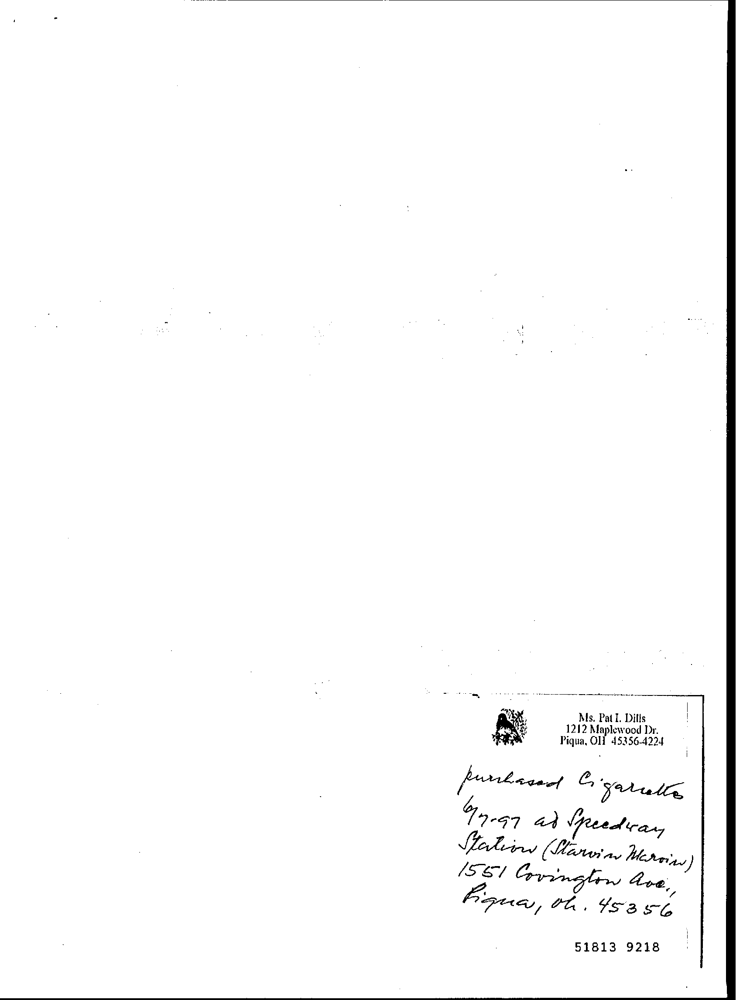 Ms. Pat I. Dills
1212 Maplewood Dr.
Piqua, OH 45356-4224
purchased Cigarettes
6/7-97 at Speedway
Station (Starvin Marvin)
1551 Covington Ave.,
Piqua, Oh. 45356
51813 9218